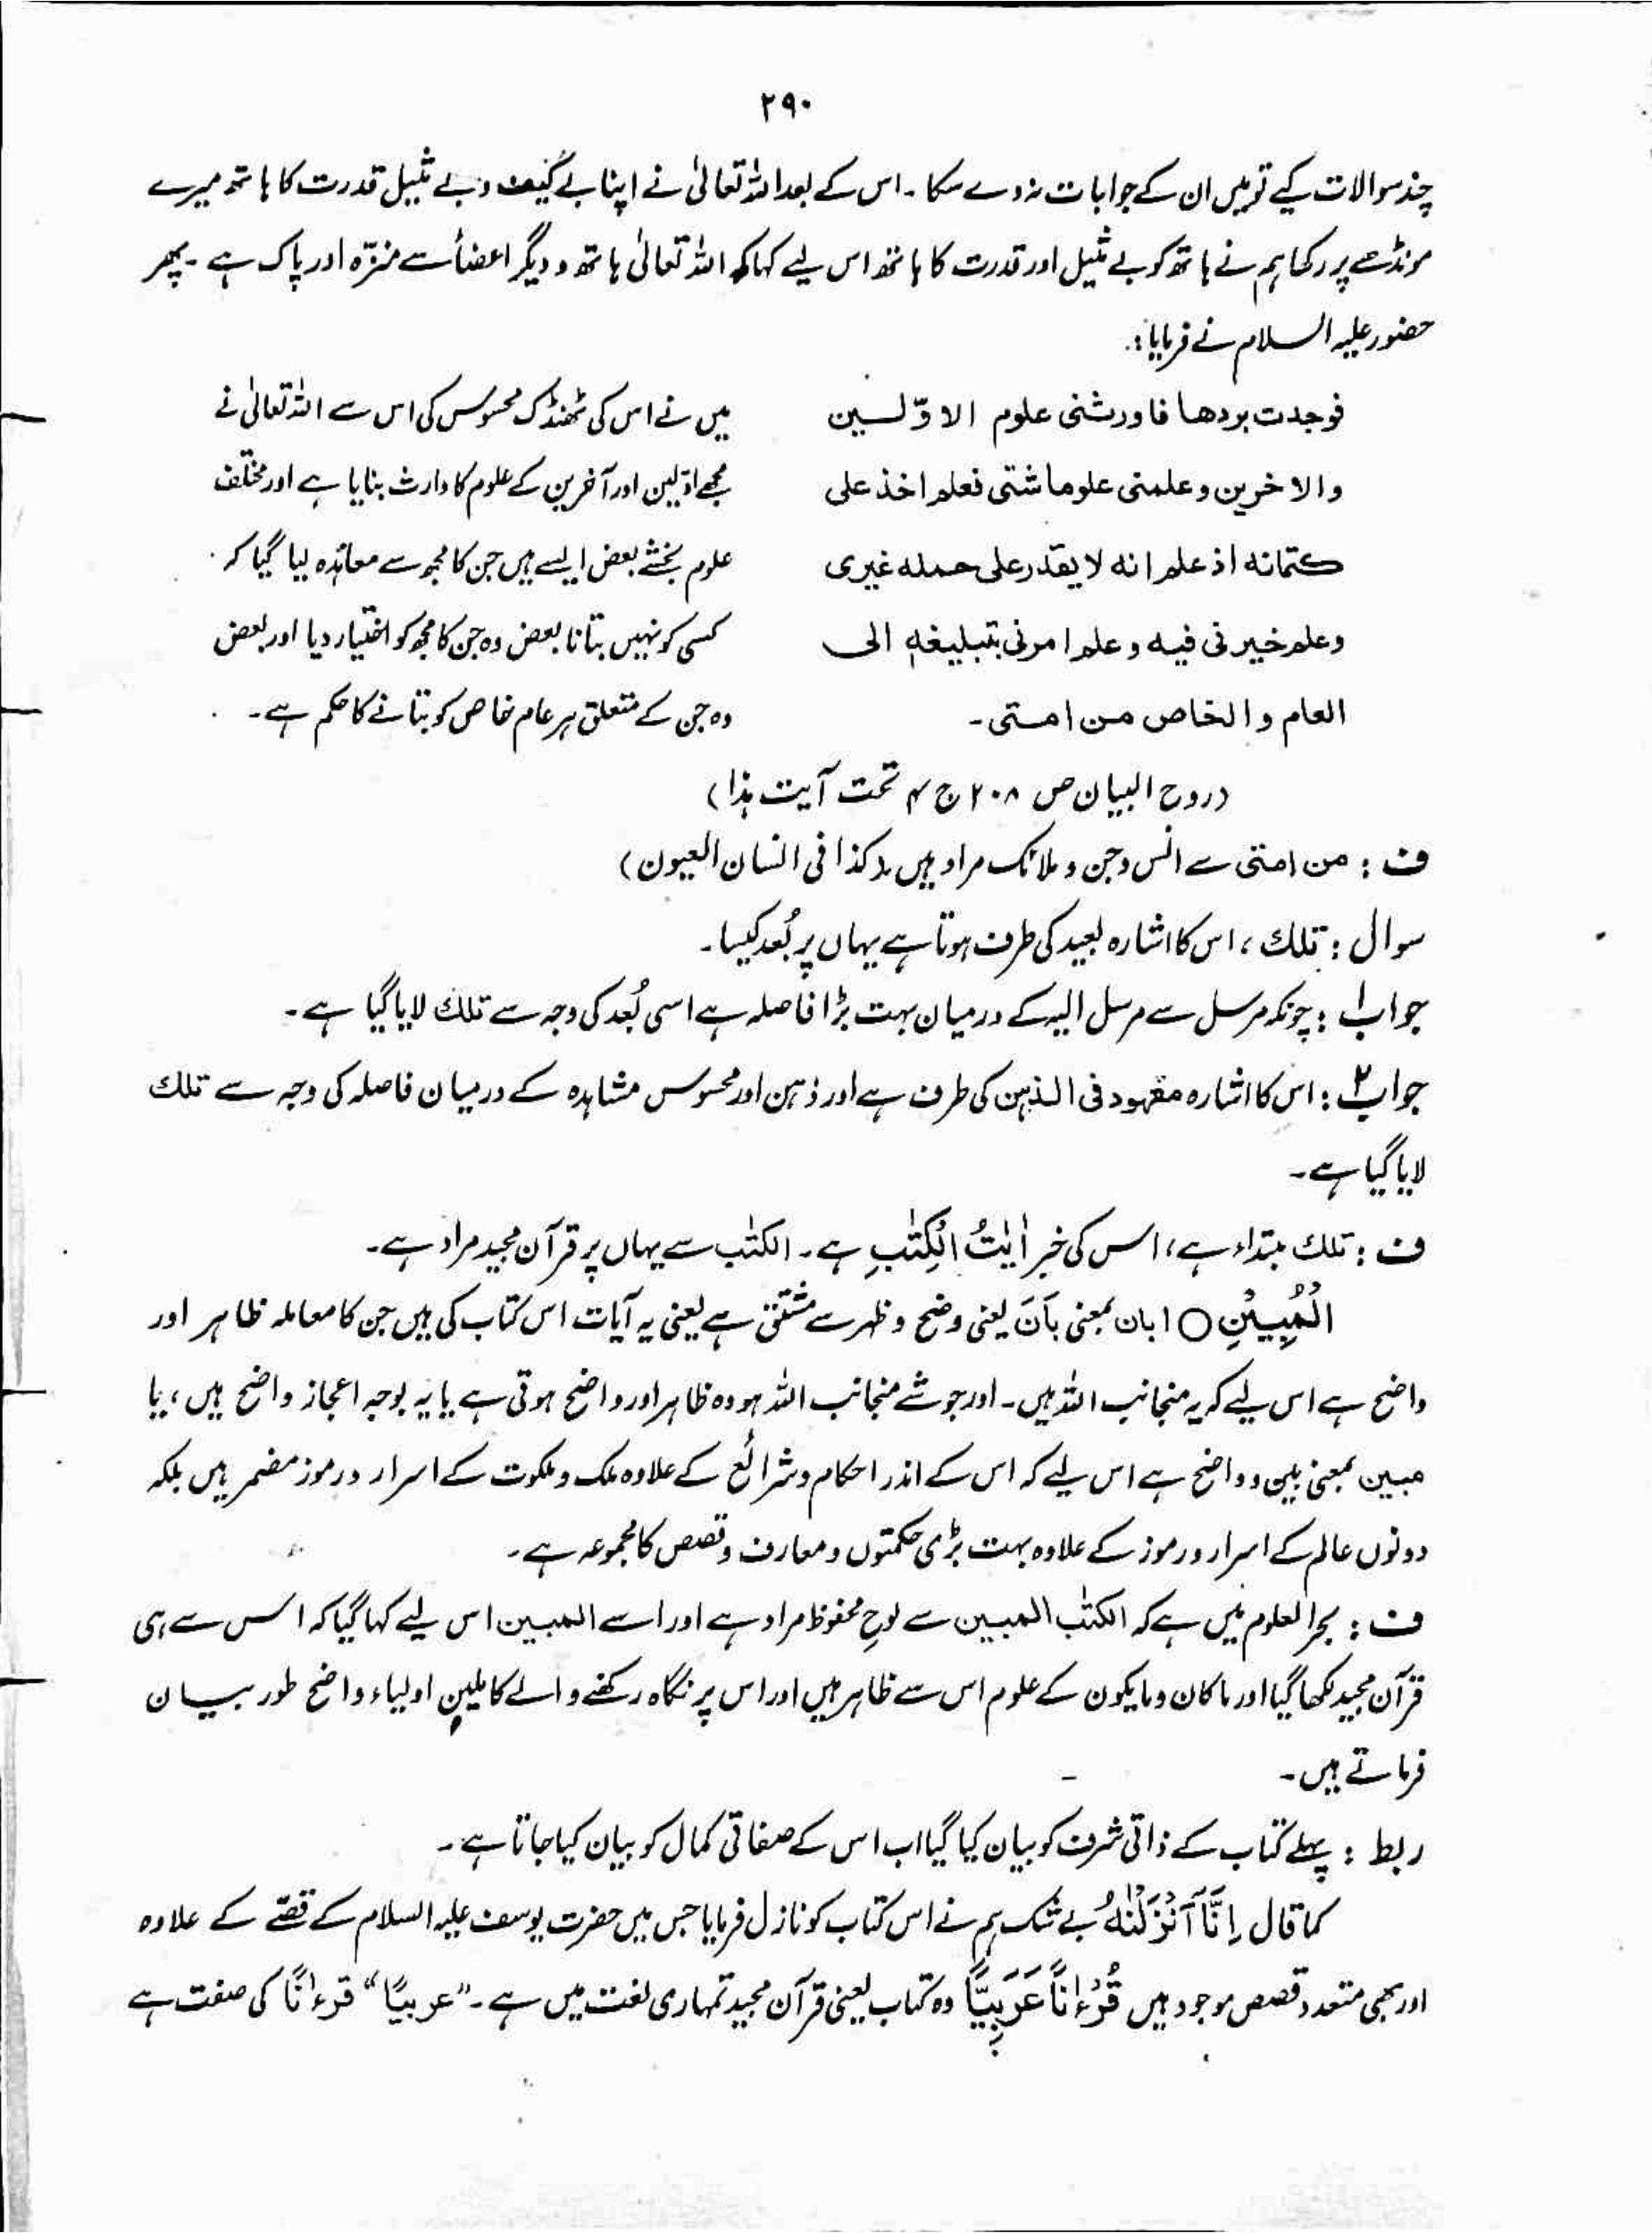 ۲۹۰
چند سوالات کیے تو میں ان کے جوابات نہ دے سکا۔ اس کے بعد اللہ تعالیٰ نے اپنا بے کیف و بے مثیل قدرت کا ہاتھ میرے
مونڈھے پر رکھا ہم نے ہاتھ کو بے مثیل اور قدرت کا ہاتھ اس لیے کہا کہ اللہ تعالیٰ ہاتھ و دیگر اعضأ سے منزّہ اور پاک ہے۔ پھر
حضور علیہ السلام نے فرمایا:
فوجدت بردها فاورثنی علوم الاوّلسین
والاخرین وعلمنی علوما شتی فعلم اخذ علی
کتمانه اذ علم انه لا یقدر علی حمله غیری
وعلم خیرنی فیه وعلم امرنی بتبلیغه الی
العام والخاص من امتی۔
میں نے اس کی ٹھنڈک محسوس کی اس سے اللہ تعالیٰ نے
مجھے اوّلین اور آخرین کے علوم کا وارث بنایا ہے اور مختلف
علوم بخشے بعض ایسے ہیں جن کا مجھ سے معاہدہ لیا گیا کہ
کسی کو نہیں بتانا بعض وہ جن کا مجھ کو اختیار دیا اور بعض
وہ جن کے متعلق ہر عام خاص کو بتانے کا حکم ہے۔
(روح البیان ص ۲۰۸ ج ۴ تحت آیت ہذا)
ف : من امتی سے انس و جن و ملائک مراد ہیں (کذا فی انسان العیون)
سوال : تلك ، اس کا اشارہ بعید کی طرف ہوتا ہے یہاں پر بُعد کیسا۔
جواب ۱ : چونکہ مرسل سے مرسل الیہ کے درمیان بہت بڑا فاصلہ ہے اسی بُعد کی وجہ سے تلك لایا گیا ہے۔
جواب ۲ : اس کا اشارہ معہود فی الذہن کی طرف ہے اور ذہن اور محسوس مشاہدہ کے درمیان فاصلہ کی وجہ سے تلك
لایا گیا ہے۔
ف : تلك مبتداء ہے، اس کی خبر اٰیٰتُ الْکِتٰبِ ہے۔ الکتٰب سے یہاں پر قرآن مجید مراد ہے۔
الْمُبِیْنِ ○ ابان بمعنی بَانَ یعنی وضح و ظہر سے مشتق ہے یعنی یہ آیات اس کتاب کی ہیں جن کا معاملہ ظاہر اور
واضح ہے اس لیے کہ یہ منجانب اللہ ہیں۔ اور جو شے منجانب اللہ ہو وہ ظاہر اور واضح ہوتی ہے یا یہ بوجہ اعجاز واضح ہیں، یا
مبین بمعنی بیّن و واضح ہے اس لیے کہ اس کے اندر احکام و شرائع کے علاوہ ملک و ملکوت کے اسرار و رموز مضمر ہیں بلکہ
دونوں عالم کے اسرار و رموز کے علاوہ بہت بڑی حکمتوں و معارف و قصص کا مجموعہ ہے۔
ف : بحر العلوم میں ہے کہ الکتٰب المبین سے لوحِ محفوظ مراد ہے اور اسے المبین اس لیے کہا گیا کہ اس سے ہی
قرآن مجید لکھا گیا اور ماکان و مایکون کے علوم اس سے ظاہر ہیں اور اس پر نگاہ رکھنے والے کاملین اولیاء واضح طور بیان
فرماتے ہیں۔
ربط : پہلے کتاب کے ذاتی شرف کو بیان کیا گیا اب اس کے صفاتی کمال کو بیان کیا جاتا ہے۔
کما قال اِنَّآ اَنْزَلْنٰهُ بے شک ہم نے اس کتاب کو نازل فرمایا جس میں حضرت یوسف علیہ السلام کے قصّے کے علاوہ
اور بھی متعدد قصص موجود ہیں قُرْءٰنًا عَرَبِیًّا وہ کتاب یعنی قرآن مجید تمہاری لغت میں ہے۔ "عربیًا" قرءٰنًا کی صفت ہے